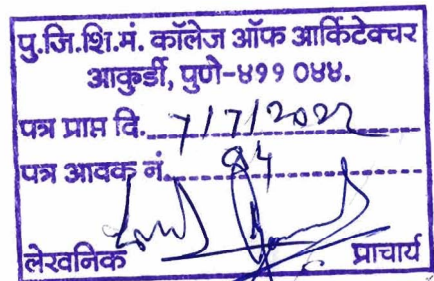 पु.जि.शि.मं. कॉलेज ऑफ आर्किटेक्चर
आकुर्डी, पुणे-४११ ०४४.
पत्र प्राप्त दि. 7/7/2022
पत्र आवक नं.
लेखनिक प्राचार्य